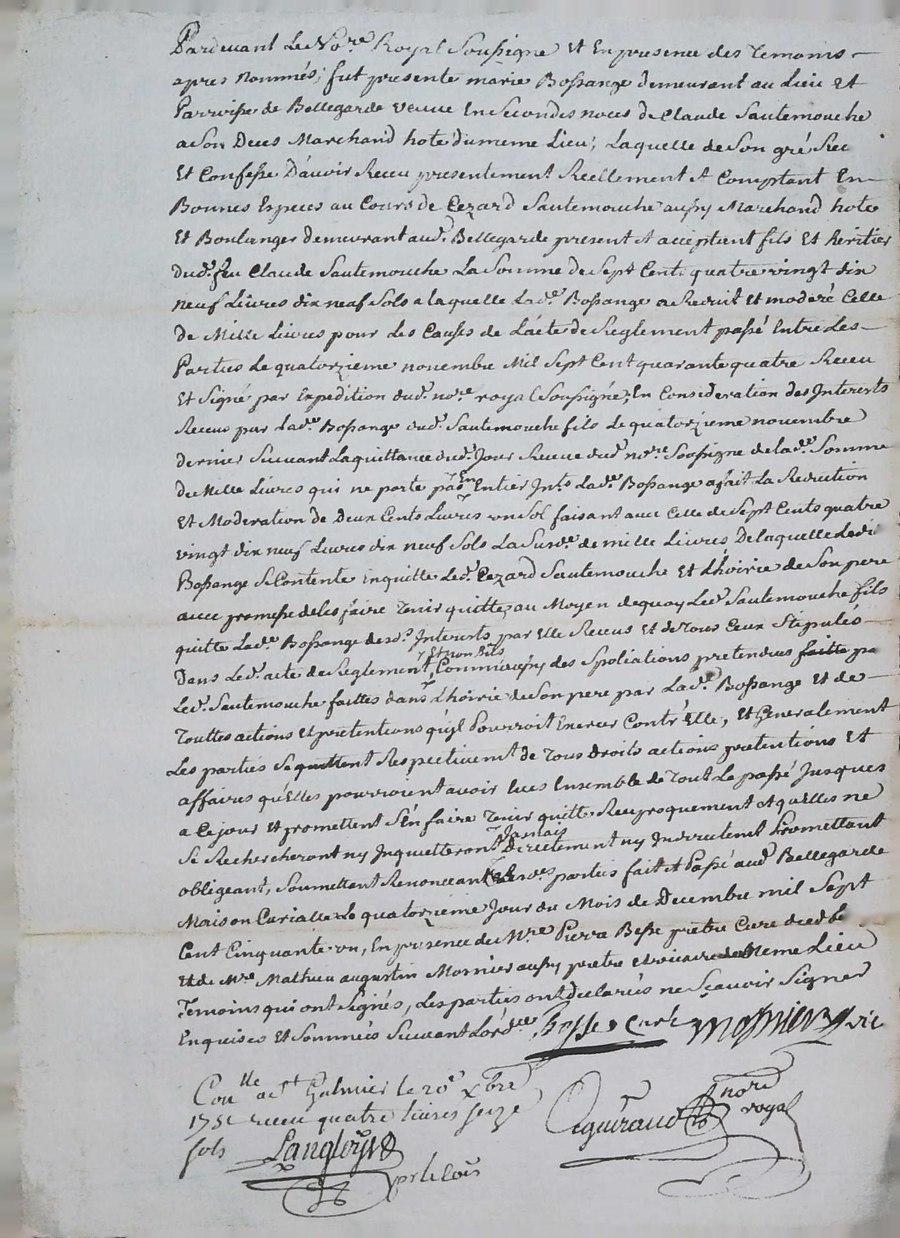 Pardevant Le No.re Royal Soussigne Et En presence des Temoins
apres nommés; fut presente marie Bossange demeurant au Lieu et
Parroisse de Bellegarde veuve En Secondes noces de Claude Sautemouche
a Son Deces Marchand hote du meme Lieu; Laquelle de Son gré
Et Confesse D'avoir Receu presentement Reellement et Comptant En
Bonnes Especes au Cours de Cezard Sautemouche aussy Marchand hote
Et Boulanger demeurant aud. Bellegarde present et acceptant fils Et heritier
dud. feu Claude Sautemouche La Somme de Sept Cent quatre vingt dix
neuf Livres dix neuf Sols a laquelle Lad.e Bossange a Reduit et modéré Celle
de Mille Livres pour Les Causes de L'acte de Reglement passé Entre Les
Parties Le quatorzieme novembre Mil Sept Cent quarante quatre Receu
Et Signé par Expedition dud. no.re royal Soussigné; En Consideration des Interests
Receus par Lad.e Bossange dud. Sautemouche fils Le quatorzieme novembre
dernier Suivant La quittance dud. Jour Receue dud. no.re Soussigne de lad.e Somme
de Mille Livres qui ne porte pas En Entier Lad.e Bossange a fait La Reduction
Et Moderation de Deux Cents Livres un Sol faisant avec Celle de Sept Cents quatre
vingt dix neuf Livres dix neuf Sols La Susd.e de mille Livres De laquelle
Bossange Se Contente En quitte Led. Cezard Sautemouche Et L'hoirie de Son pere
avec promesse de les faire Tenir quitte, au Moyen de quoy Led. Sautemouche fils
quitte Lad.e Bossange desd. Interests par Elle Receus Et de Tous Ceux Stipulés
Dans Led. acte de Reglement Et non dus, Comme aussy des Spoliations pretendues
Led. Sautemouche faittes dans L'hoirie de Son pere par Lad.e Bossange et de
Touttes actions et pretentions qu'il Pourroit Exercer Contr'Elle, Et Generalement
Les parties Se quittent Respectivement de Tous Droits actions pretentions Et
affaires qu'Elles pourroient avoir Eues Ensemble de Tout Le passé Jusques
a Ce jour Et promettent S'En faire Tenir quitte Reciproquement et qu'elles ne
Se Rechercheront ny Inquietteront Jamais Directement ny Indirectement Promettant
obligeant, Soumettant Renonceant Lesd. parties fait et Passé aud. Bellegarde
Maison Curialle Le quatorzieme Jour du Mois de Decembre mil Sept
Cent Cinquante un, En presence de M.re Pierre Besse prêtre Curé
Et de M.re Mathieu augustin Mosnier aussy prêtre et vicaire du Meme Lieu
Temoins qui ont Signés, Les parties ont declarées ne Sçavoir Signer
Enquises Et Sommées Suivant L'ord.ce Besse Curé Mosnier vic
Con.lle a St Galmier le 20e Xbre
1751 receu quatre livres seize
sols Langloys
Deguiraud no.re royal